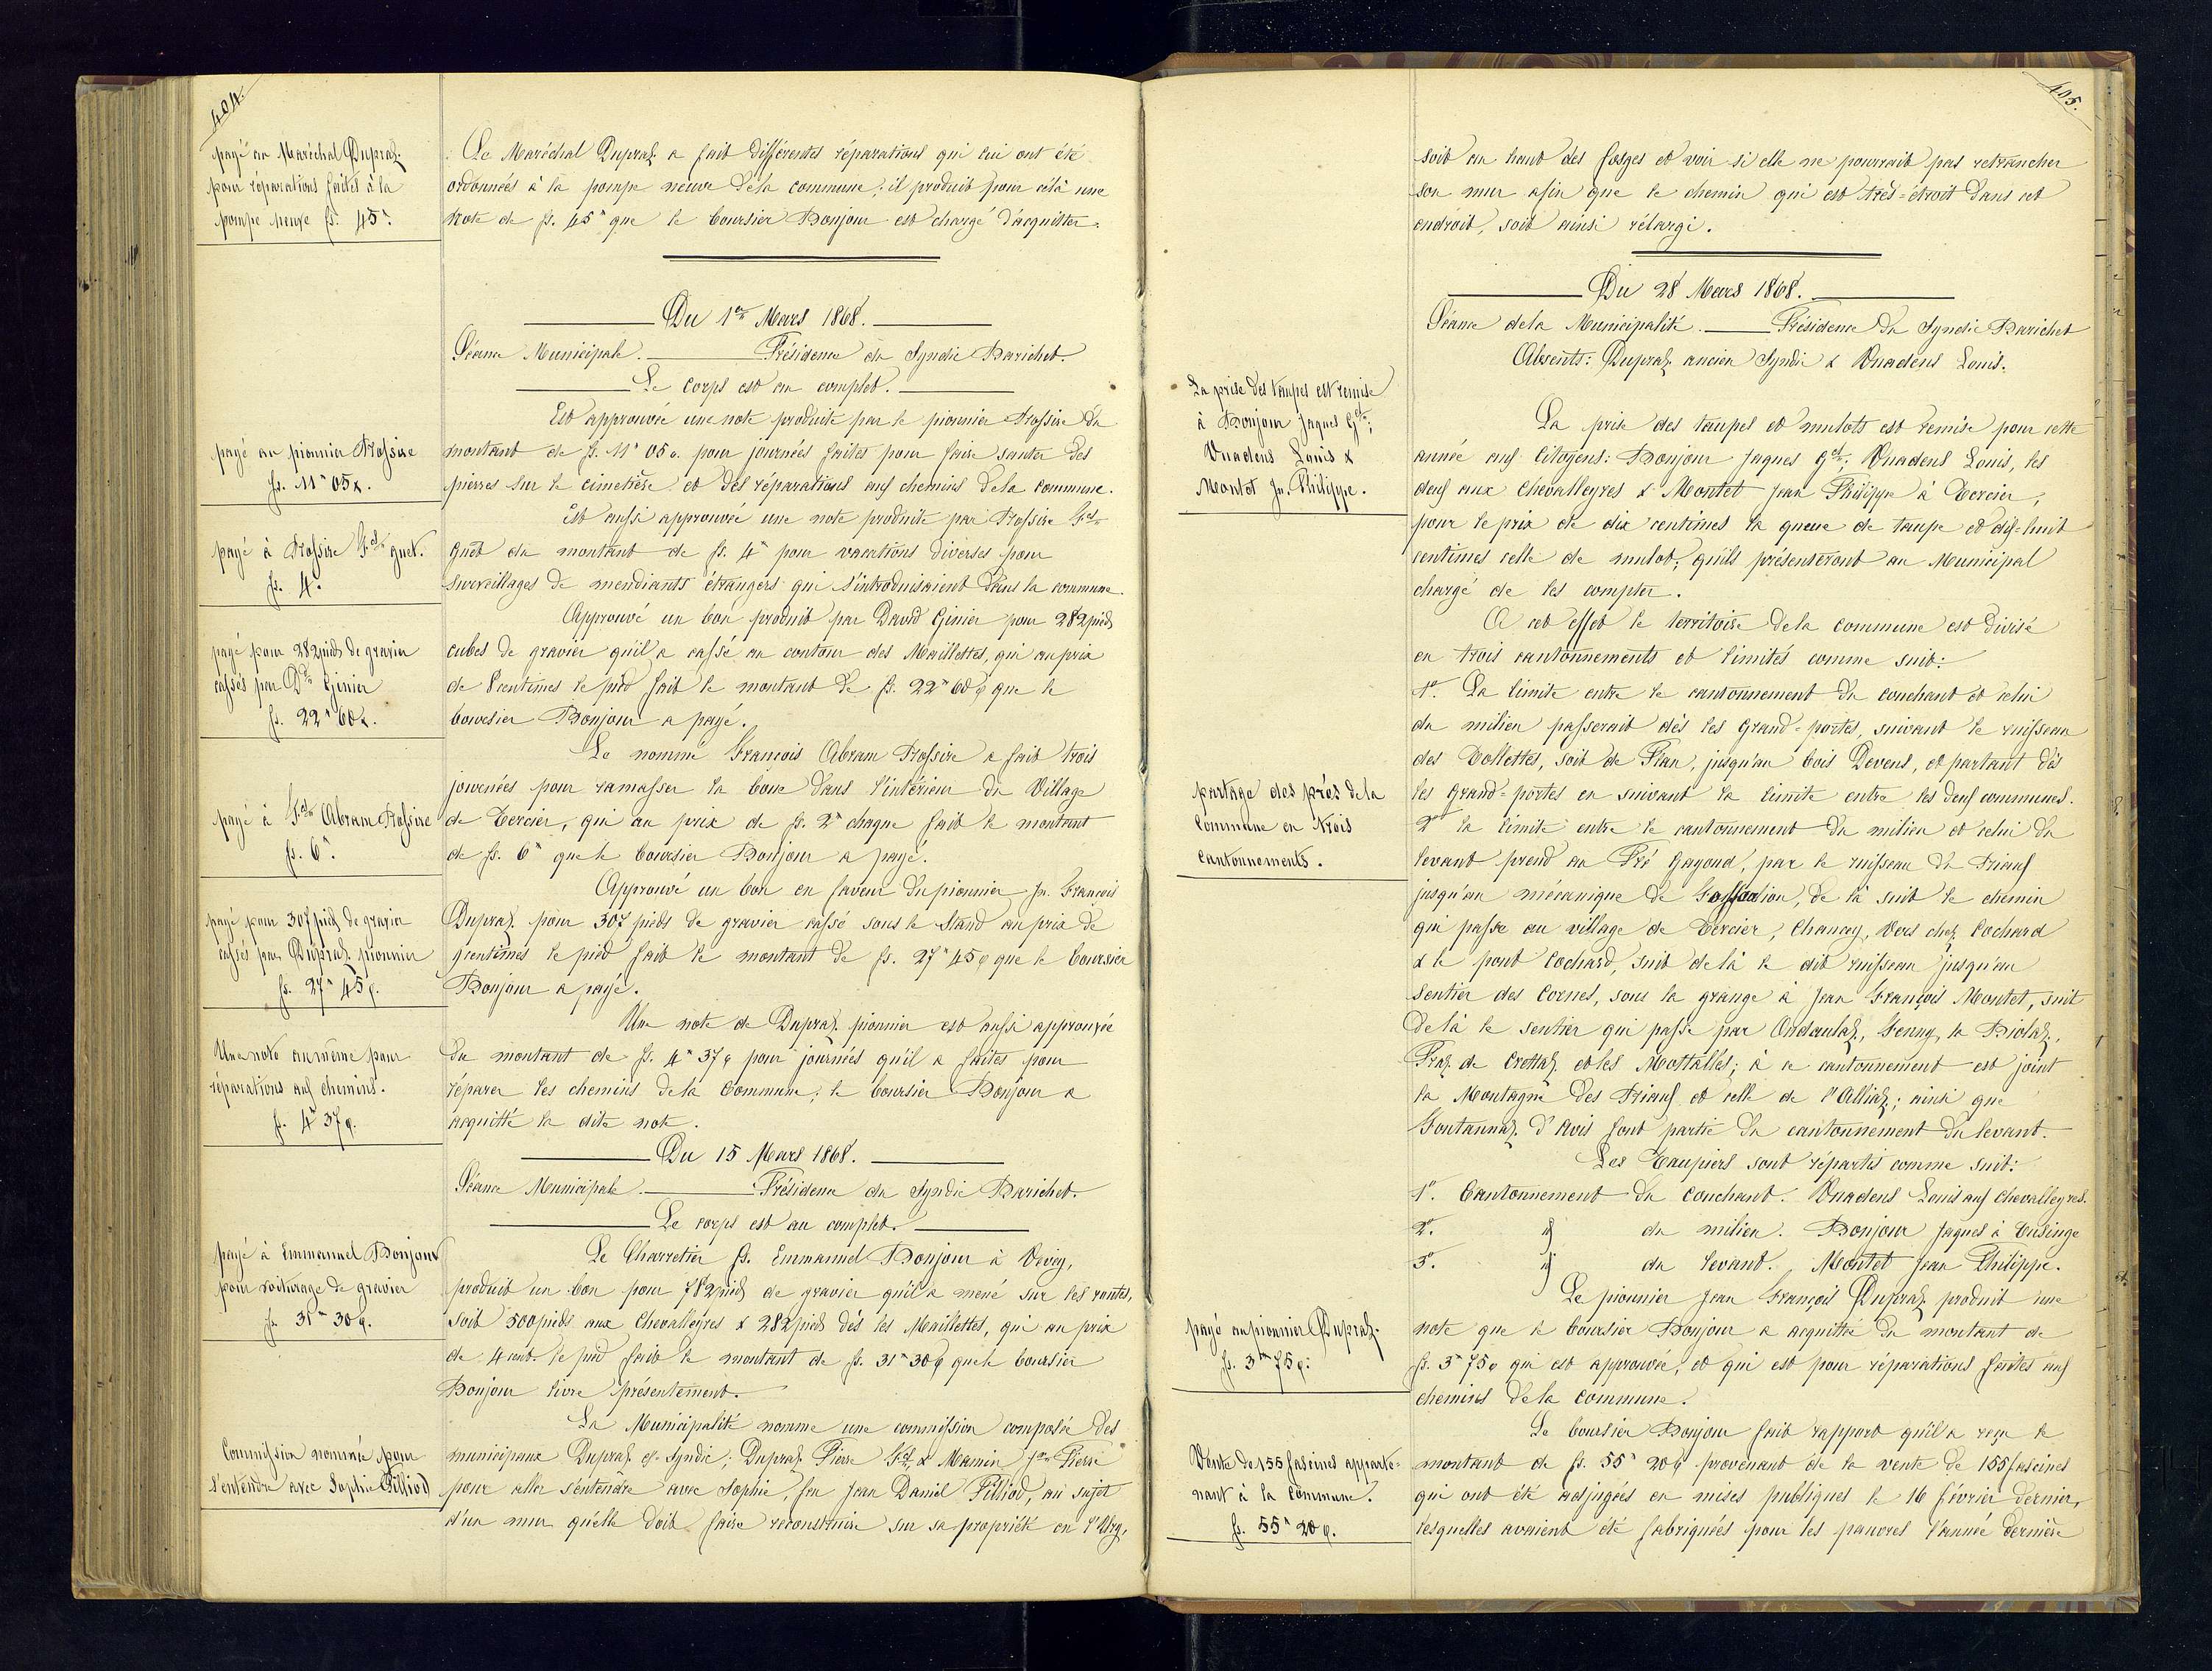 404.
payé au Maréchal Dupraz
pour réparations faites à la
pompe neuve fs. 45"
Le Maréchal Dupraz a fait différentes réparations qui lui ont été
ordonnées à la pompe neuve de la commune; il produit pour cela une
note de fs. 45" que le boursier Bonjour est chargé d'acquitter.
Du 1er Mars 1868.
Séance Municipale. Présidence du Syndic Barichet.
Le corps est au complet.
payé au pionnier Brossire
fs. 11" 05c.
Est approuvée une note produite par le pionnier Brossire du
montant de fs. 11" 05c. pour journées faites pour faire sauter des
pierres sur le cimetière et des réparations aux chemins de la commune.
payé à Brossire guet.
fs. 4"
Est aussi approuvée une note produite par Brossire
guet du montant de fs. 4" pour vacations diverses pour
surveillages de mendiants étrangers qui s'introduisaient dans la commune.
payé pour 282 pieds de gravier
cassés par Dd Genier
fs. 22" 60c.
Approuvé un bon produit par David Genier pour 282 pieds
cubes de gravier qu'il a cassé au contour des Maillettes, qui au prix
de 8 centimes le pied fait le montant de fs. 22" 60c que le
boursier Bonjour a payé.
payé à Abram Brossire
fs. 6"
Le nommé François Abram Brossire a fait trois
journées pour ramasser la boue dans l'intérieur du Village
de Tercier, qui au prix de fs. 2" chaque fait le montant
de fs. 6" que le boursier Bonjour a payé.
payé pour 307 pieds de gravier
cassés par Dupraz pionnier
fs. 27" 45c.
Approuvé un bon en faveur du pionnier Jn. François
Dupraz pour 307 pieds de gravier cassé sous le Stand au prix de
9 centimes le pied fait le montant de fs. 27" 45c que le boursier
Bonjour a payé.
Une note au même pour
réparations aux chemins.
fs. 4" 37c.
Une note de Dupraz pionnier est aussi approuvée
du montant de fs. 4" 37c pour journées qu'il a faites pour
réparer les chemins de la Commune; le boursier Bonjour a
acquitté la dite note.
Du 15 Mars 1868.
Séance Municipale. Présidence du Syndic Barichet.
Le corps est au complet.
payé à Emmanuel Bonjour
pour voiturage de gravier
fs. 31" 30c.
Le Charretier fs. Emmanuel Bonjour à Vevey,
produit un bon pour 782 pieds de gravier qu'il a mené sur les routes,
soit 500 pieds aux Chevalleyres & 282 pieds dès les Maillettes, qui au prix
de 4 cent. le pied fait le montant de fs. 31" 30c que le boursier
Bonjour livre présentement.
Commission nommée pour
s'entendre avec Sophie Pilliod
La Municipalité nomme une commission composée des
municipaux Dupraz ex-Syndic; Dupraz Pierre & Mamin Jn Pierre
pour aller s'entendre avec Sophie, feu Jean Daniel Pilliod, au sujet
d'un mur qu'elle doit faire reconstruire sur sa propriété en
405.
soit au haut des forges et voir si elle ne pourrait pas retrancher
son mur afin que le chemin qui est très-étroit dans cet
endroit, soit ainsi rélargi.
Du 28 Mars 1868.
Séance de la Municipalité. Présidence du Syndic Barichet
Absents: Dupraz ancien Syndic & Vuadens Louis.
La prise des taupes est remise
à Bonjour Jaques
Vuadens Louis &
Montet Jn. Philippe.
La prise des taupes et mulots est remise pour cette
année aux Citoyens: Bonjour Jaques Vuadens Louis, les
deux aux Chevalleyres & Montet Jean Philippe à Tercier,
pour le prix de dix centimes la queue de taupe et dix-huit
centimes celle de mulot, qu'ils présenteront au Municipal
chargé de les compter.
A cet effet le territoire de la commune est divisé
en trois cantonnements et limités comme suit:
partage des prés de la
Commune en trois
cantonnements.
1º. La limite entre le cantonnement du couchant et celui
du milieu passerait dès les Grand-portes, suivant le ruisseau
des Tollettes, soit de Plan, jusqu'au bois Devens, et partant dès
les Grand-portes en suivant la limite entre les deux communes.
2º la limite entre le cantonnement du milieu et celui du
levant prend au Pré Gayoud, par le ruisseau du Priauf
jusqu'au mécanique de de là suit le chemin
qui passe au village de Tercier, Chancey, Vers chez Cochard
& le pont Cochard, suit de là le dit ruisseau jusqu'au
Sentier des Cornes, sous la grange à Jean François Montet, suit
de là le sentier qui passe par Ondaulaz, Fenny, la Piolaz,
Praz de Crottaz et les Mottalles; à ce cantonnement est joint
la Montagne des Priauf et celle de l'Alliaz; ainsi que
Fontannaz d'Avis font partie du cantonnement du levant.
Les Taupiers sont répartis comme suit:
1º. Cantonnement du Couchant. Vuadens Louis aux Chevalleyres.
2º. " du milieu. Bonjour Jaques à Tusinge
3º. " du levant. Montet Jean Philippe.
payé au pionnier Dupraz
fs. 3" 75c.
Le pionnier Jean François Dupraz produit une
note que le boursier Bonjour a acquittée du montant de
fs. 3" 75c qui est approuvée, et qui est pour réparations faites aux
chemins de la commune.
Vente de 155 fascines apparte-
nant à la Commune.
fs. 55" 20c.
Le boursier Bonjour fait rapport qu'il a reçu le
montant de fs. 55" 20c provenant de la vente de 155 fascines
qui ont été adjugées en mises publiques le 16 février dernier,
lesquelles avaient été fabriquées pour les pauvres l'année dernière